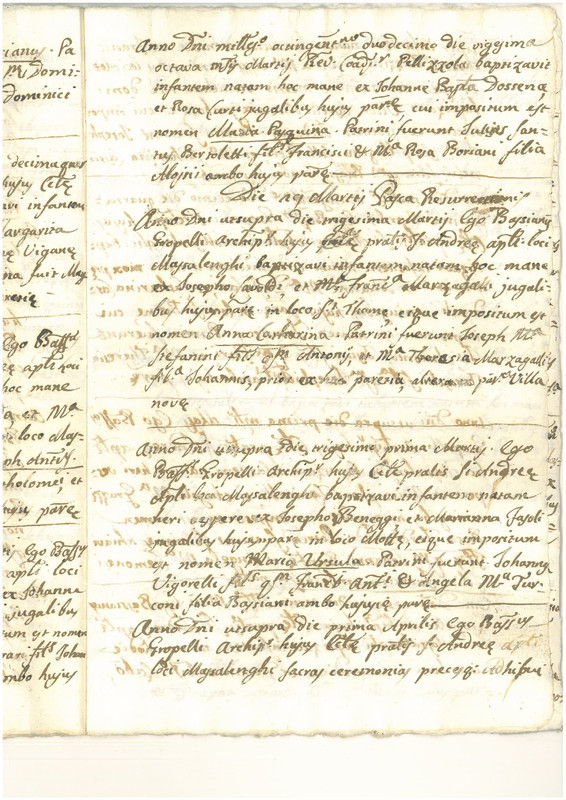 rianus. Pa
Domi-
Dominici
decimaquar
hujus
avi infantem
argarita
Viganę
na fuit
Ego Bassa
apli loci
hoc mane
et Mª
loco May-
ph
tholomei, et
hujus parę
Ego Bassus
apli loci
ex Johanna
jugalibus
um est nomen
Johan
mbo hujus
Anno Dni millego octingentmo duodecimo die vigesima
octava Martij Rev. Coadjr Pellizzola baptizavit
infantem natam hoc mane ex Johanne Basta Dossena
et Rosa Curti jugalibus hujus parę, cui impositum est
nomen Maria Pasquina. Patrini fuerunt San-
tus Bertoletti filᵍ Francisci et Mª Rosa Boriani filia
ambo hujus parę
Die 29 Martij Pasca Resurrectionis
Anno Dni utsupra die trigesima Martij Ego Bassianus
Gropelli Archipr hujus pralis S. Andreę apli loci
Majalenghi baptizavi infantem natam hoc mane
ex Josepho et Mª Francª Marzagalli jugali-
bus hujus parę in loco Sti Thomę, eique impositum est
nomen Anna Catharina. Patrini fuerunt Joseph Mª
Stefanini filᵍ qm Antonij, et Mª Theresia Marzagalli
filª Johannis, prior ex hac parecia, altera ex parę Villa
novę
Anno Dni utsupra die trigesima prima Martij. Ego
Basss Gropelli Archipr hujus Cełę pralis S. Andreę
Apli loci Majalenghi baptizavi infantem natam
heri vespere ex Josepho Beneggi et Marianna Fasoli
jugalibus hujus parę in loco Mottę, eique impositum
est nomen Maria Ursula Patrini fuerunt Johannes
Vigorelli filᵍ qm Antᵢ & Angela Mª Tur-
coni filia Bassiani ambo hujus parę
Anno Dni utsupra die prima Aprilis Ego Bassus
Gropelli Archipr hujus Cełę pralis S. Andreę apli
loci Majalenghi sacras ceremonias precesq: adhibui